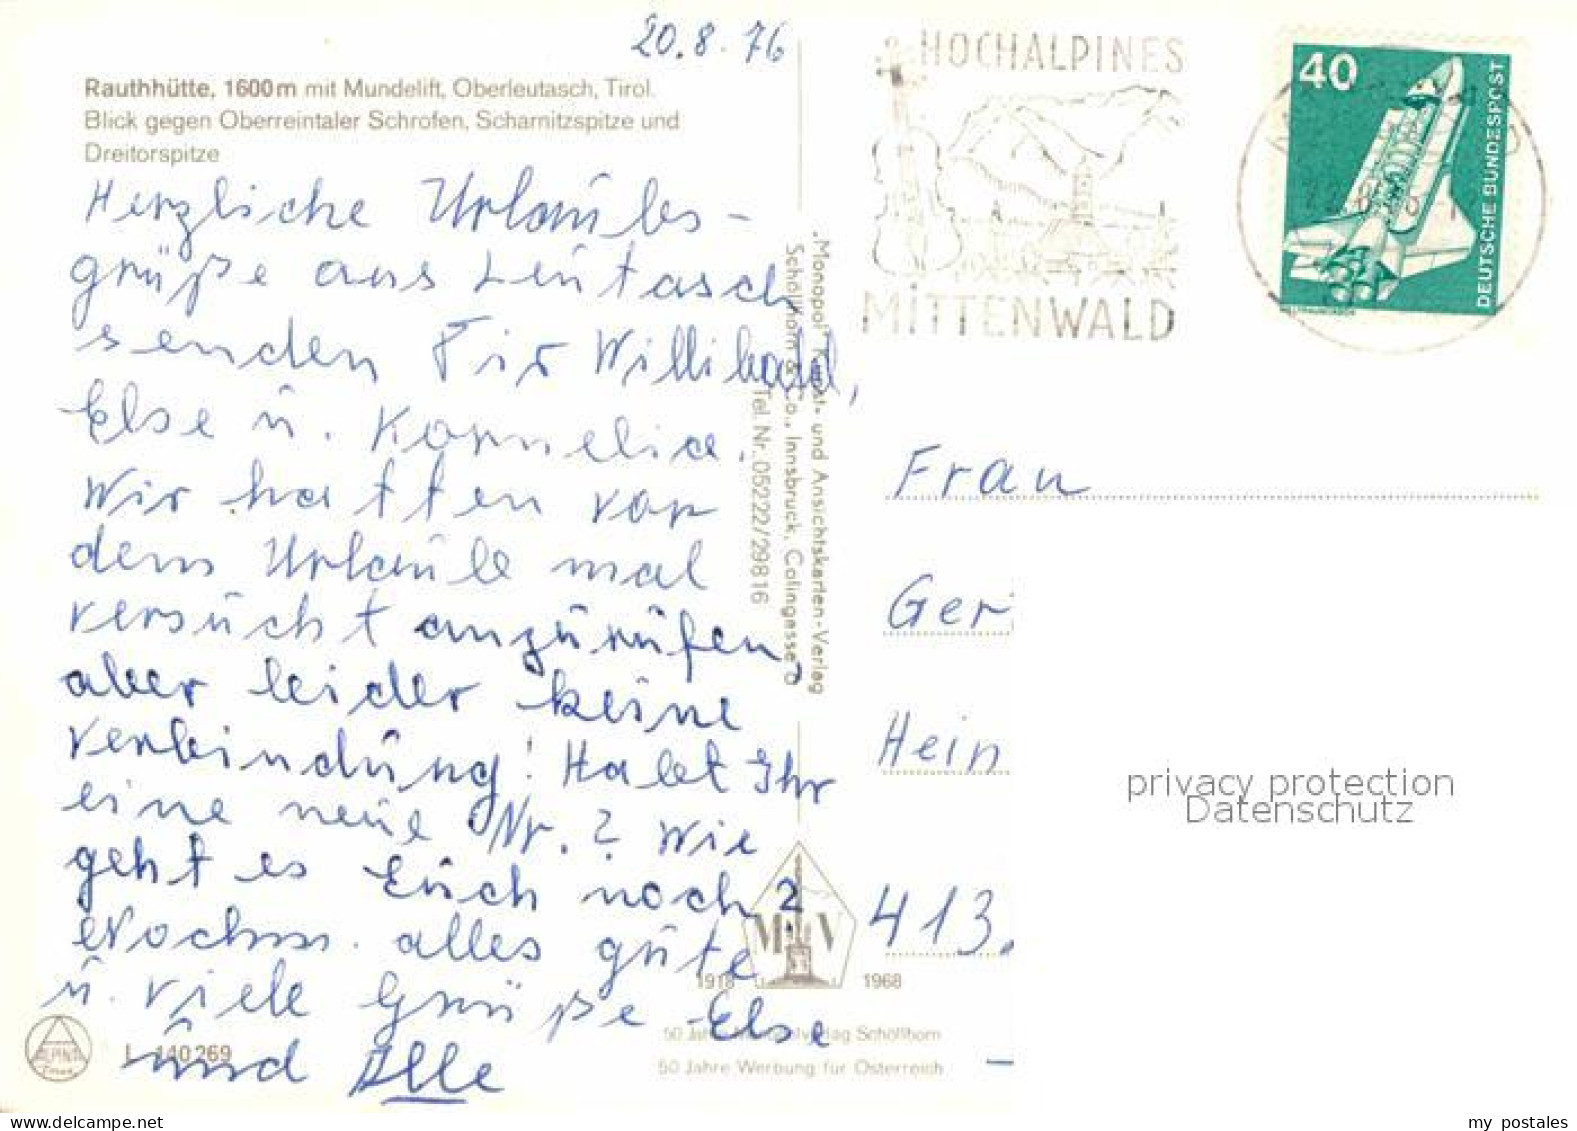 20.8.76
Rauthhütte, 1600m mit Mundelift, Oberleutasch, Tirol.
Blick gegen Oberreintaler Schrofen, Scharnitzspitze und
Dreitorspitze
Herzliche Urlaubs-
grüße aus Leutasch
senden Fir Willibald,
Else u. Kornelia.
Wir hatten vor
dem Urlaub mal
versucht anzurufen,
aber leider keine
Verbindung! Habt Ihr
eine neue Nr.? Wie
geht es Euch noch?
Nochm. alles gute
u. viele Grüße Else
und Alle
"Monopol" Kunst- und Ansichtskarten-Verlag
Schöllhorn & Co., Innsbruck, Colingasse
Tel. Nr. 05222/29816
M V
1918 1968
50 Jahre Verlag Schöllhorn
50 Jahre Werbung für Österreich
ALPINA
L 140269
HOCHALPINES
MITTENWALD
40
DEUTSCHE BUNDESPOST
Frau
Ger
Hein
413
privacy protection
Datenschutz
www.ansichtskarten-center.de
my postales